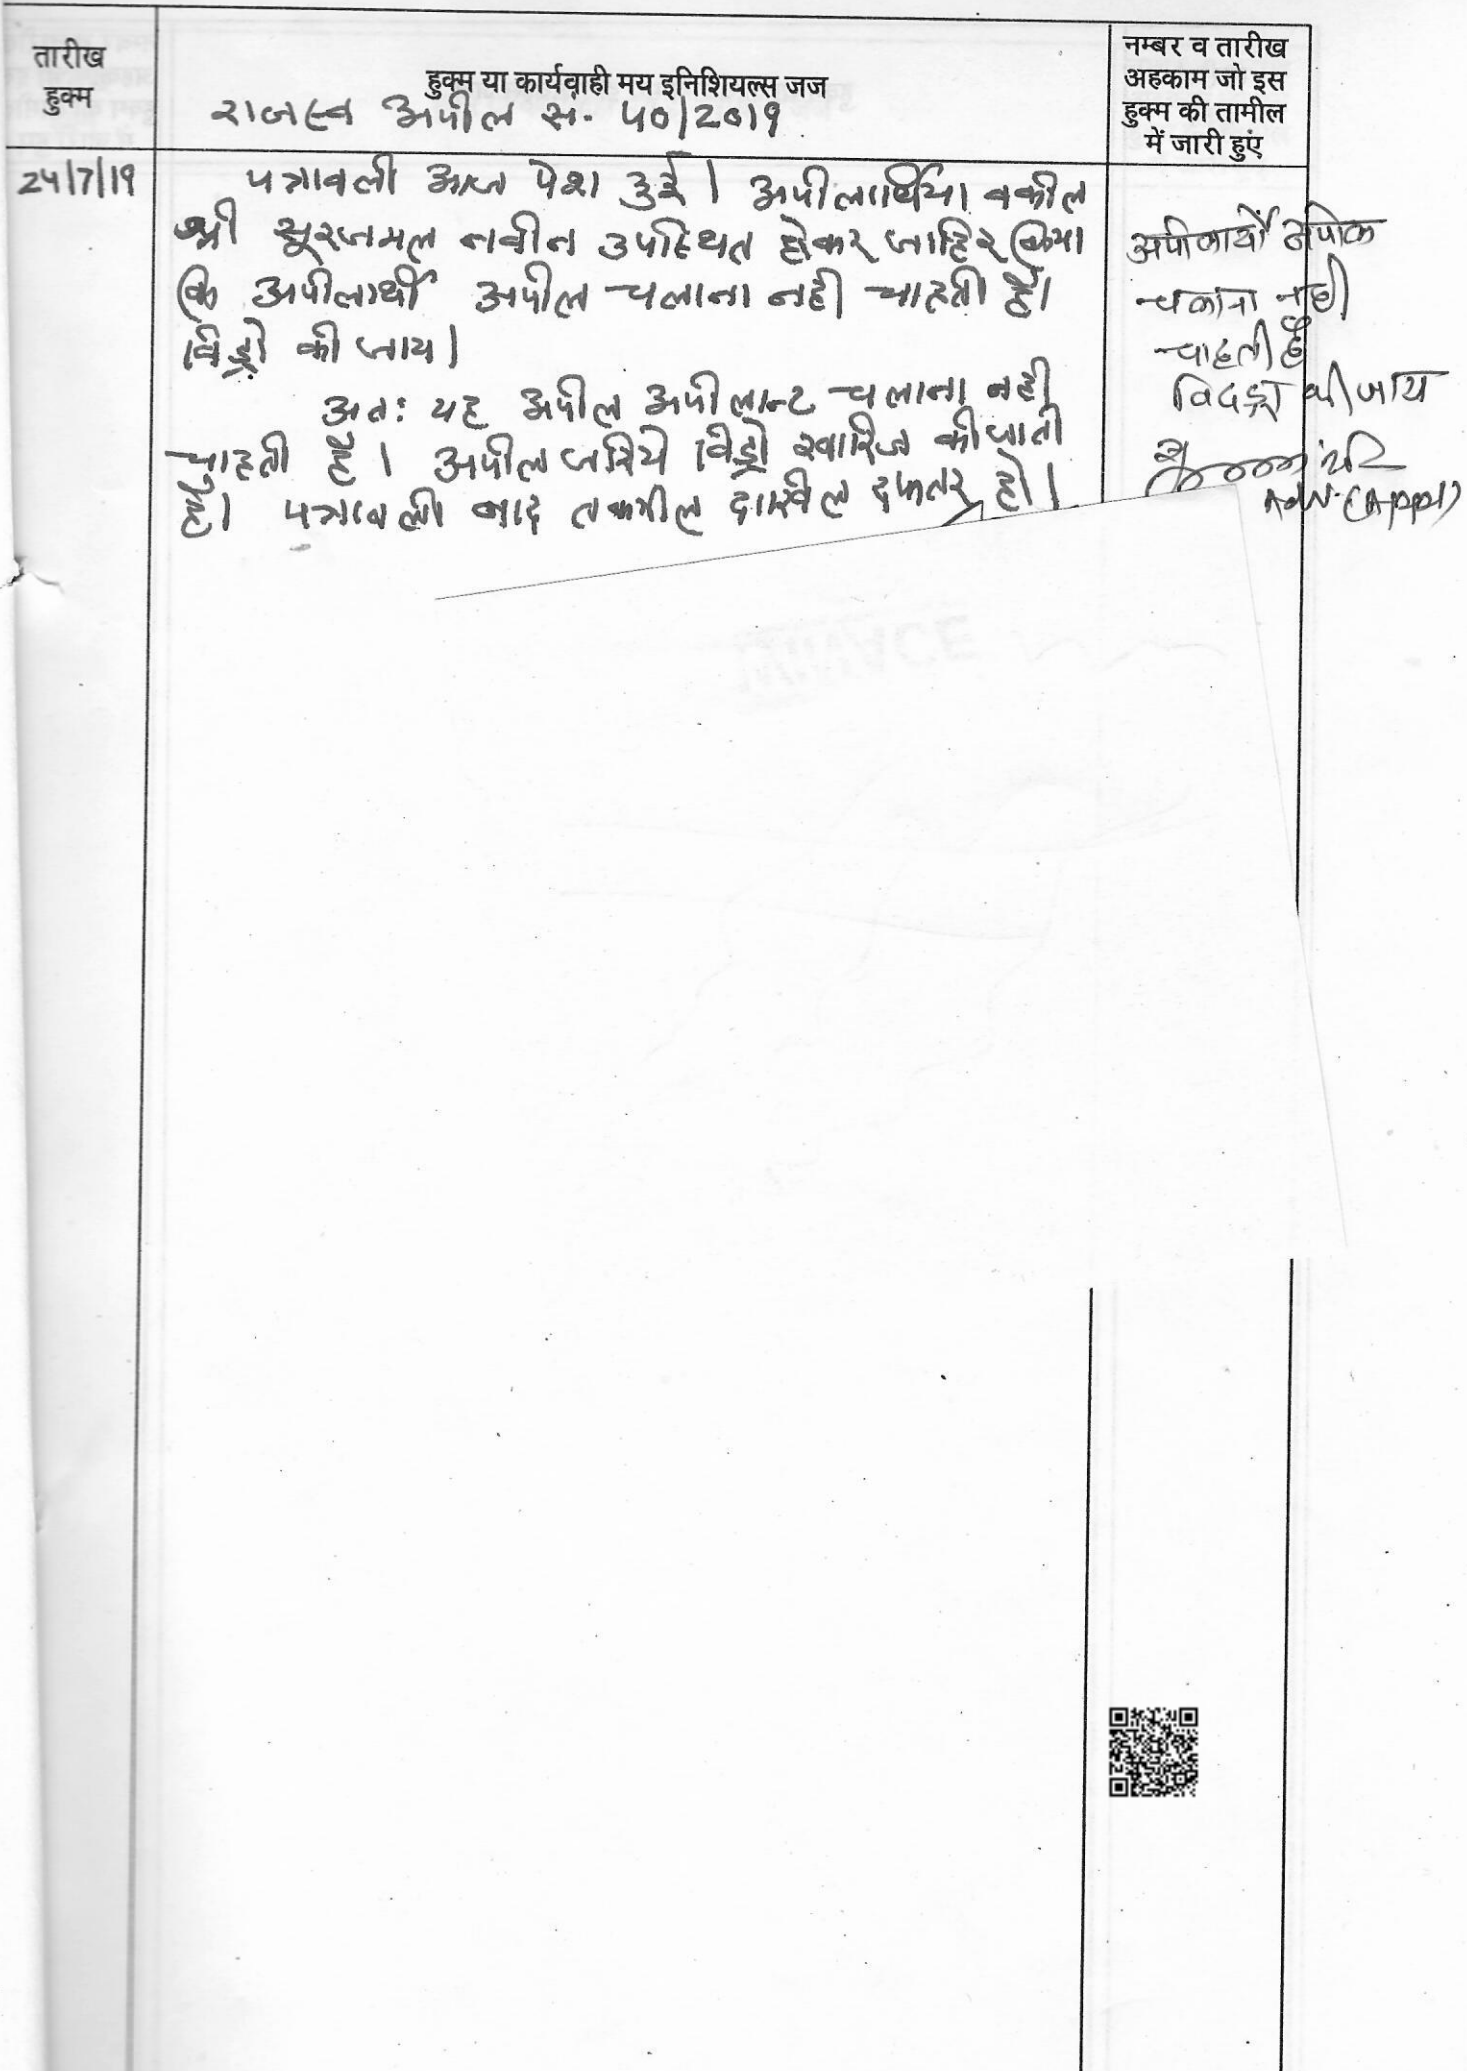 तारीख
हुक्म
हुक्म या कार्यवाही मय इनिशियल्स जज
नम्बर व तारीख
अहकाम जो इस
हुक्म की तामील
में जारी हुएं
राजस्व अपील स. 40/2019
24/7/19
पत्रावली आज पेश हुई। अपीलार्थिया वकील
श्री सूरजमल नवीन उपस्थित होकर जाहिर किया
कि अपीलार्थी अपील चलाना नही चाहती है।
विड्रो की जाय।
अतः यह अपील अपीलान्ट चलाना नही
चाहती है। अपील जरिये विड्रो खारिज की जाती
है। पत्रावली बाद तकमील दाखिल दफ्तर हो।
अपीलार्थी अपील
चलाना नही
चाहती है
विदड्रा की जाय